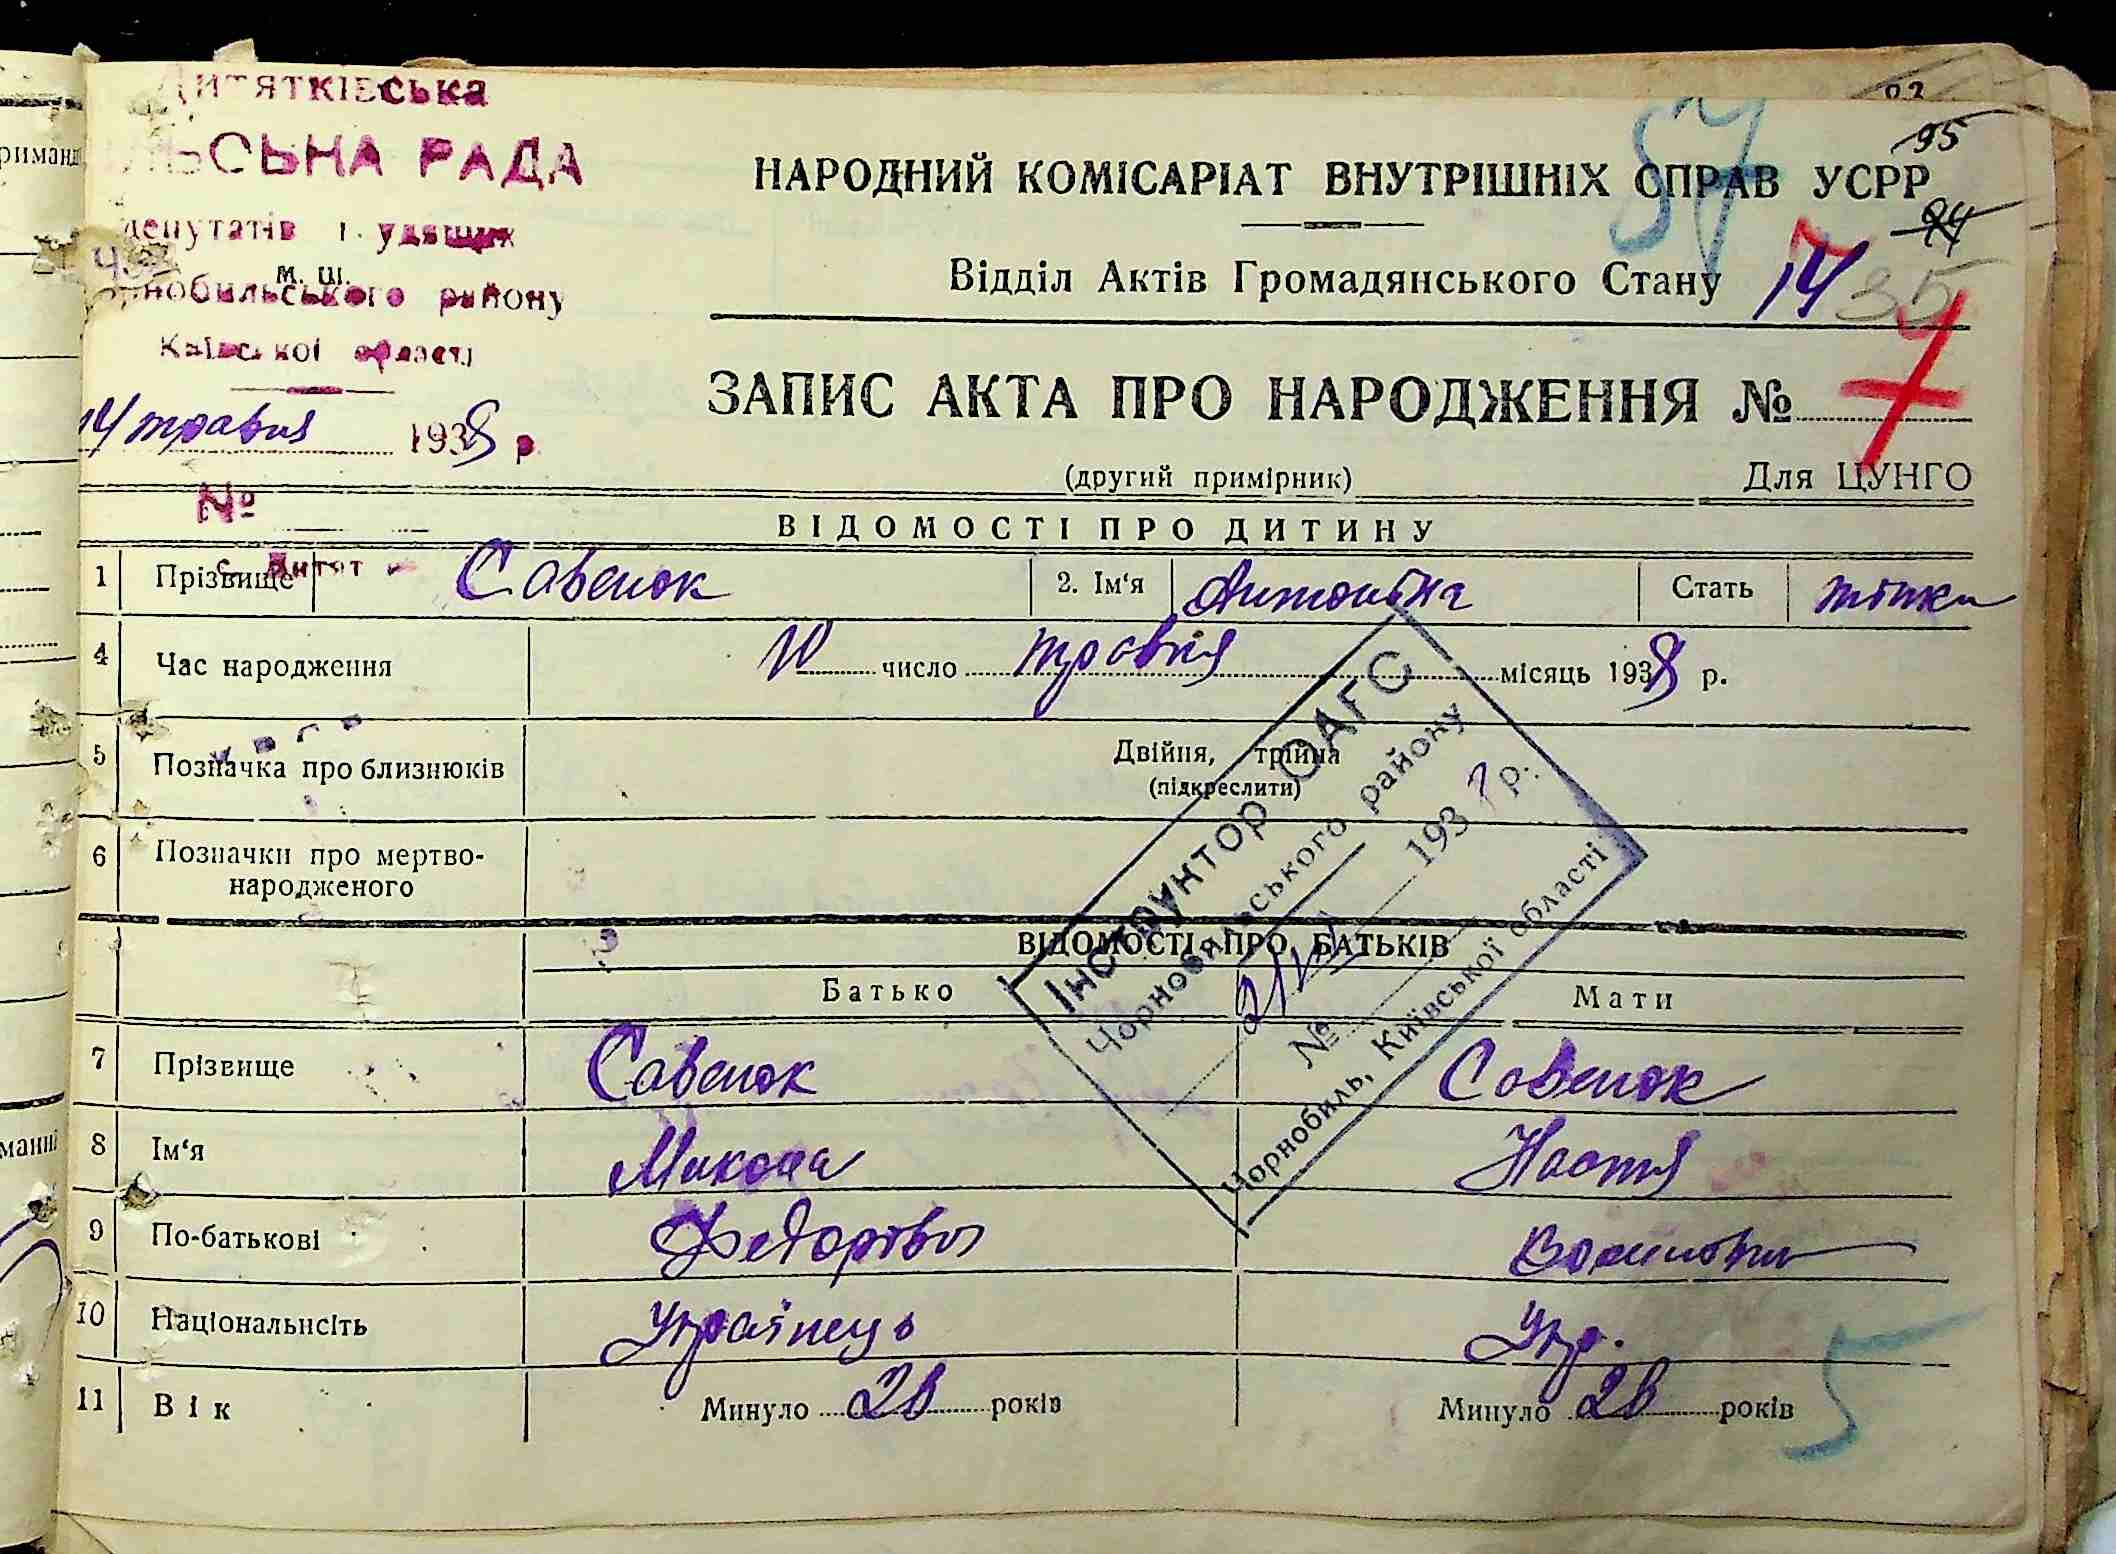 Дитятківська
ЛЬСЬКА РАДА
депутатів
м. ш.
Чорнобильського району
Київської області
14 травня 1938 р
№
57
95
94
НАРОДНИЙ КОМІСАРІАТ ВНУТРІШНІХ СПРАВ УСРР
Відділ Актів Громадянського Стану 14 35
ЗАПИС АКТА ПРО НАРОДЖЕННЯ № 7
(другий примірник) Для ЦУНГО
ВІДОМОСТІ ПРО ДИТИНУ
1 Прізвище Савенок 2. Ім'я Антоніна Стать жінки
4 Час народження 10 число травня місяць 1938 р.
5 Позначка про близнюків Двійня, трійня
(підкреслити)
6 Позначки про мертво-
народженого
Інструктор ОАГС
Чорнобильського району
193 р.
№
Чорнобиль, Київської області
ВІДОМОСТІ ПРО БАТЬКІВ
Батько Мати
7 Прізвище Савенок Савенок
8 Ім'я Микола Настя
9 По-батькові Федорович
10 Національність Українець Укр.
11 Вік Минуло 28 років Минуло 28 років
5